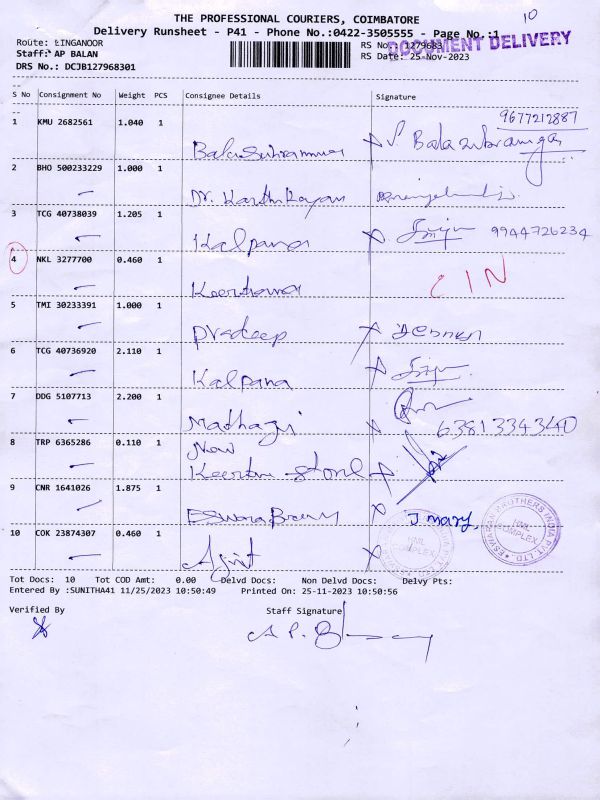 10
THE PROFESSIONAL COURIERS, COIMBATORE
Delivery Runsheet - P41 - Phone No.:0422-3505555 - Page No.:1
Route: LINGANOOR
RS No.: 1279683
DOCUMENT DELIVERY
Staff: AP BALAN
RS Date: 25-Nov-2023
DRS No.: DCJB127968301
S No Consignment No Weight PCS Consignee Details Signature
9677212887
1 KMU 2682561 1.040 1
Balasubramani
2 BHO 500233229 1.000 1
Dr. Karthikayan
3 TCG 40738039 1.205 1
Kalpana 9944726234
4 NKL 3277700 0.460 1
Keerthana CIN
5 TMI 30233391 1.000 1
Pradeep
6 TCG 40736920 2.110 1
Kalpana
7 DDG 5107713 2.200 1
6381334340
8 TRP 6365286 0.110 1
New
9 CNR 1641026 1.875 1
J. Mary
ESWARAN BROTHERS INDIA PVT. LTD.
HML COMPLEX
10 COK 23874307 0.460 1
Ajit
HML COMPLEX
Tot Docs: 10 Tot COD Amt: 0.00 Delvd Docs: Non Delvd Docs: Delvy Pts:
Entered By :SUNITHA41 11/25/2023 10:50:49 Printed On: 25-11-2023 10:50:56
Verified By Staff Signature